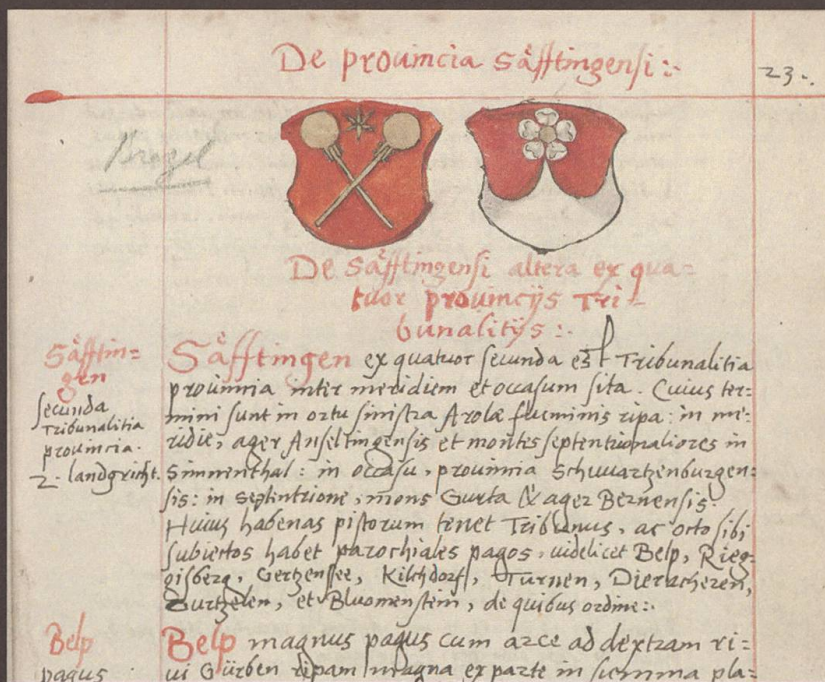 De prouincia Såfftingensi:.
23.
Bregel
De Såfftingensi altera ex qua=
tuor prouincijs Tri=
bunalitijs:.
Såfftin=
gen
secunda
Tribunalitia
prouincia.
2. landgricht.
Såfftingen ex quatuor secunda est Tribunalitia
prouincia inter meridiem et occasum sita. Cuius ter=
mini sunt in ortu sinistra Arolæ fluminis ripa: in me=
ridie, ager Anseltingensis et montes septentrionaliores in
Simnenthal: in occasu, prouincia Schwartzenburgen=
sis: in septintrione, mons Gurta & ager Bernensis.
Huius habenas pistorum tenet Tribunus, ac octo sibi
subiectos habet parochiales pagos, uidelicet Belp, Rieg=
gisberg, Gertzensee, Kilchdorf, Turnen, Dieracheren,
Gurtzelen, et Bluomenstein, de quibus ordine:.
Belp
pagus
Belp magnus pagus cum arce ad dextram ri=
ui Gürben ripam magna ex parte in summa pla=